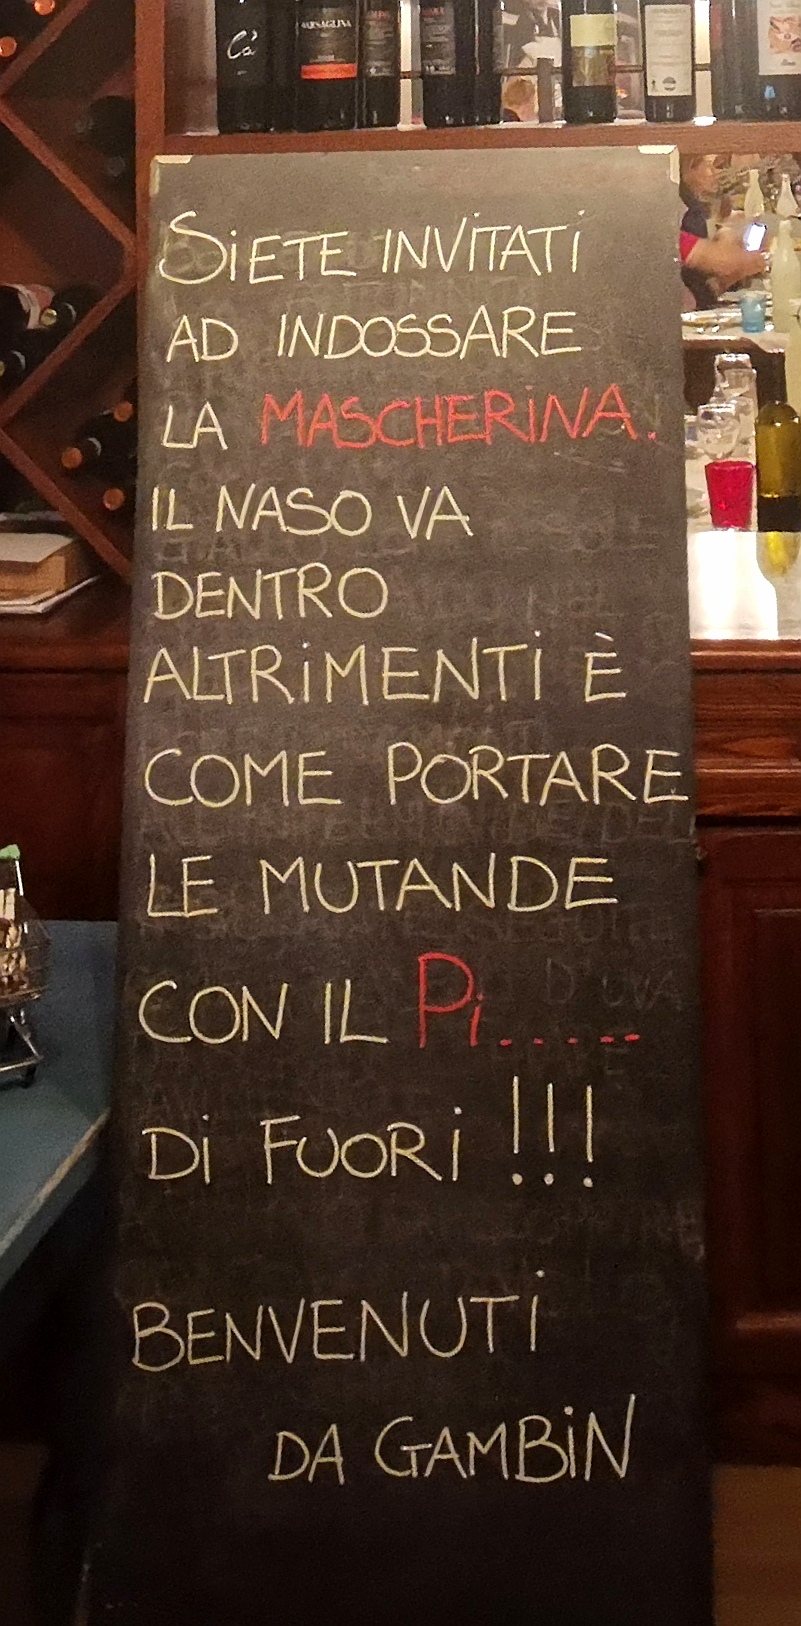 Cà
BARSAGLINA
SiETE INViTATi
AD INDOSSARE
LA MASCHERiNA.
IL NASO VA
DENTRO
ALTRiMENTi È
COME PORTARE
LE MUTANDE
CON IL Pi......
Di FUORi !!!
BENVENUTi
DA GAMBiN